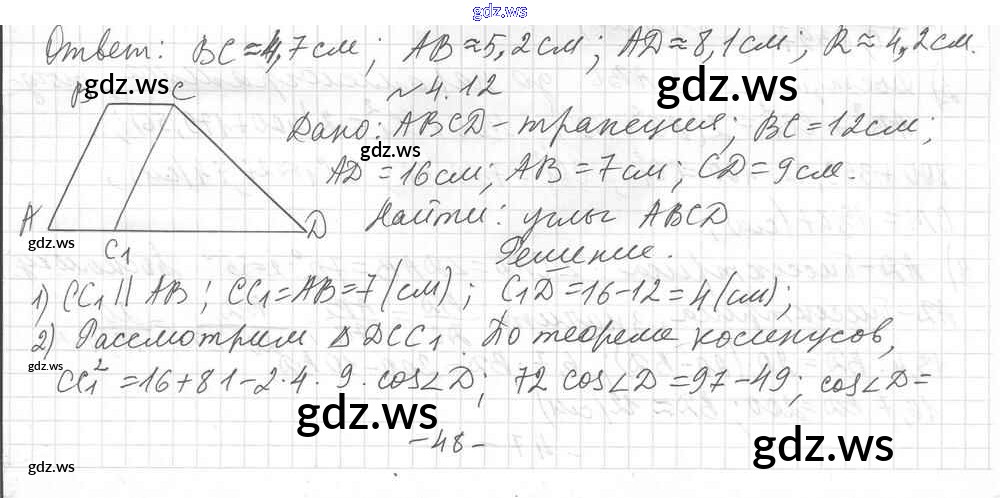 gdz.ws
Ответ: BC≈4,7см; AB≈5,2см; AD≈8,1см; R≈4,2см.
gdz.ws
gdz.ws
№4.12
B C
Дано: ABCD-трапеция; BC=12см;
gdz.ws
AD=16см; AB=7см; CD=9см.
A D
Найти: углы ABCD
gdz.ws
C1
Решение.
1) CC1 || AB; CC1=AB=7(см); C1D=16-12=4(см);
2) Рассмотрим ΔDCC1. По теореме косинусов,
gdz.ws
CC1²=16+81-2·4·9·cos∠D; 72 cos∠D=97-49; cos∠D=
gdz.ws
-48-
gdz.ws
gdz.ws